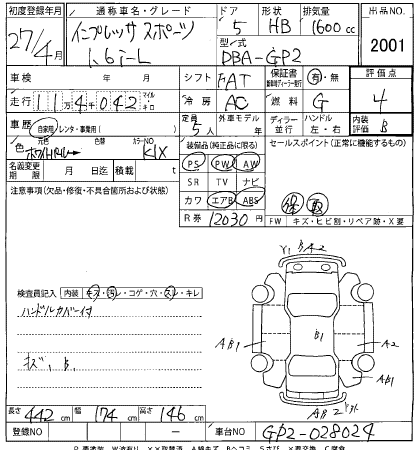 初度登録年月 通称車名・グレード ドア 形状 排気量 出品NO.
27/4月 インプレッサ スポーツ 5 HB 1600cc
1.6i-L 型式 2001
DBA-GP2
車検 年 月 シフト FAT 保証書 有・無 評価点
走行 114,042 マイル キロ 冷房 AC 燃料 G 4
車歴 自家用 レンタ・事業用( ) 定員 5人 外車モデル 年 ディーラー 並行 ハンドル 左・右 内装評価 B
色 元色 ホワイトパール 色替 カラーNO K1X 装備品(純正品に限る) セールスポイント(正常に機能するもの)
名義変更期限 月 日迄 積載 t PS PW AW
注意事項(欠品・修復・不具合箇所および状態) SR TV ナビ
カワ エアB ABS 保 取
R券 12030円 FW キズ・ヒビ割・リペア跡・X要
Y1 B A2
検査員記入 内装 キズ・汚レ・コゲ・穴・スレ・キレ
ハンドルカバー付
AB1 B1 AB1
キズ、B、 A2
AB2
長さ 442cm 幅 174cm 高さ 146cm
登録NO ー 車台NO GP2-028024